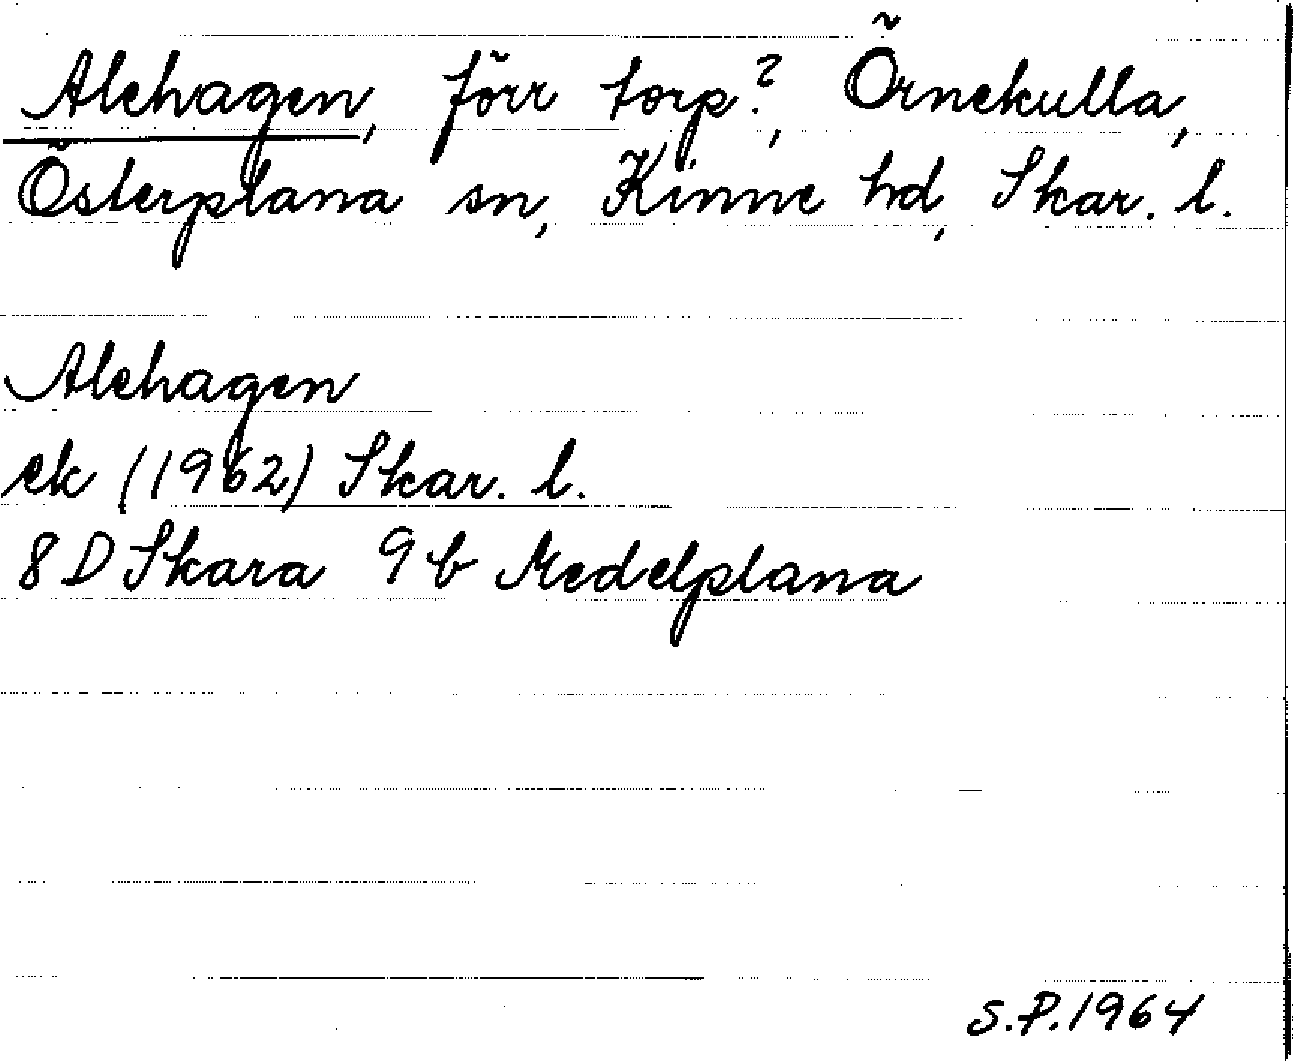 Alehagen, förr torp?, Örnekulla,
Österplana sn, Kinne hd, Skar. l.
Alehagen
ek (1962) Skar. l.
8 D Skara 9 b Medelplana
S.P. 1964